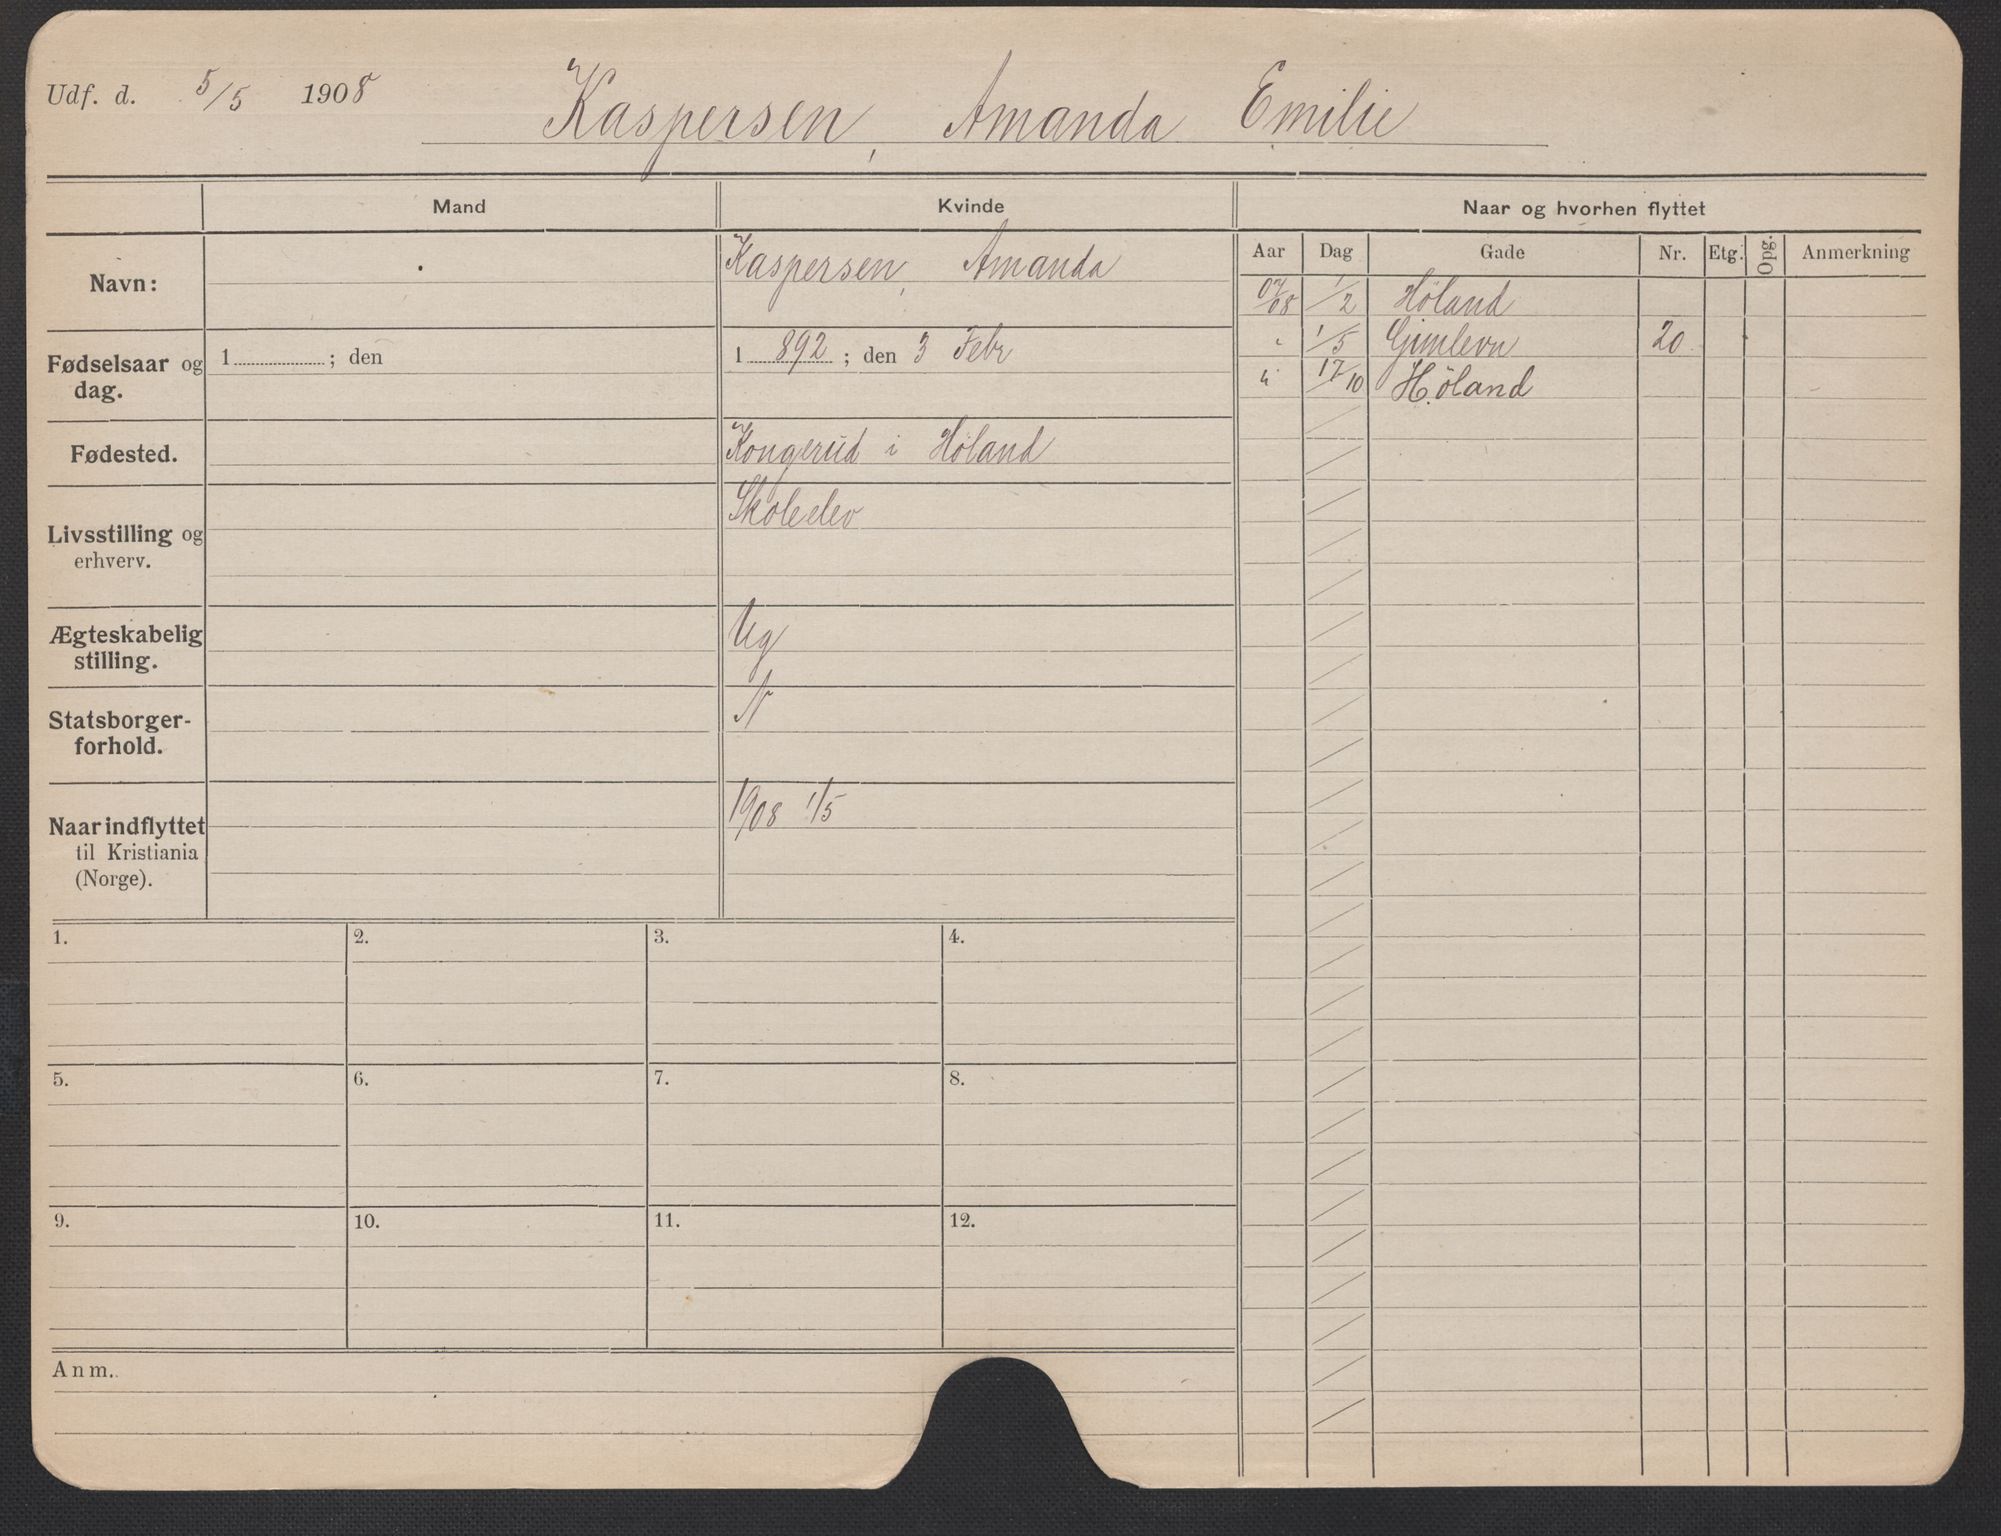 Udf. d. 5/5 1908 Kaspersen, Amanda Emilie
Mand Kvinde Naar og hvorhen flyttet
Aar Dag Gade Nr. Etg. Opg. Anmerkning
Navn: Kaspersen, Amanda
07/08 1/2 Höland
" 1/5 Gimlevn 20
" 17/10 Höland
Fødselsaar og 1 ; den 1 892 ; den 3 Febr
dag.
Fødested. Kongerud i Höland
Skoleelev
Livsstilling og
erhverv.
Ægteskabelig Ug
stilling.
Statsborger- N
forhold.
1908 1/5
Naar indflyttet
til Kristiania
(Norge).
1. 2. 3. 4.
5. 6. 7. 8.
9. 10. 11. 12.
Anm.